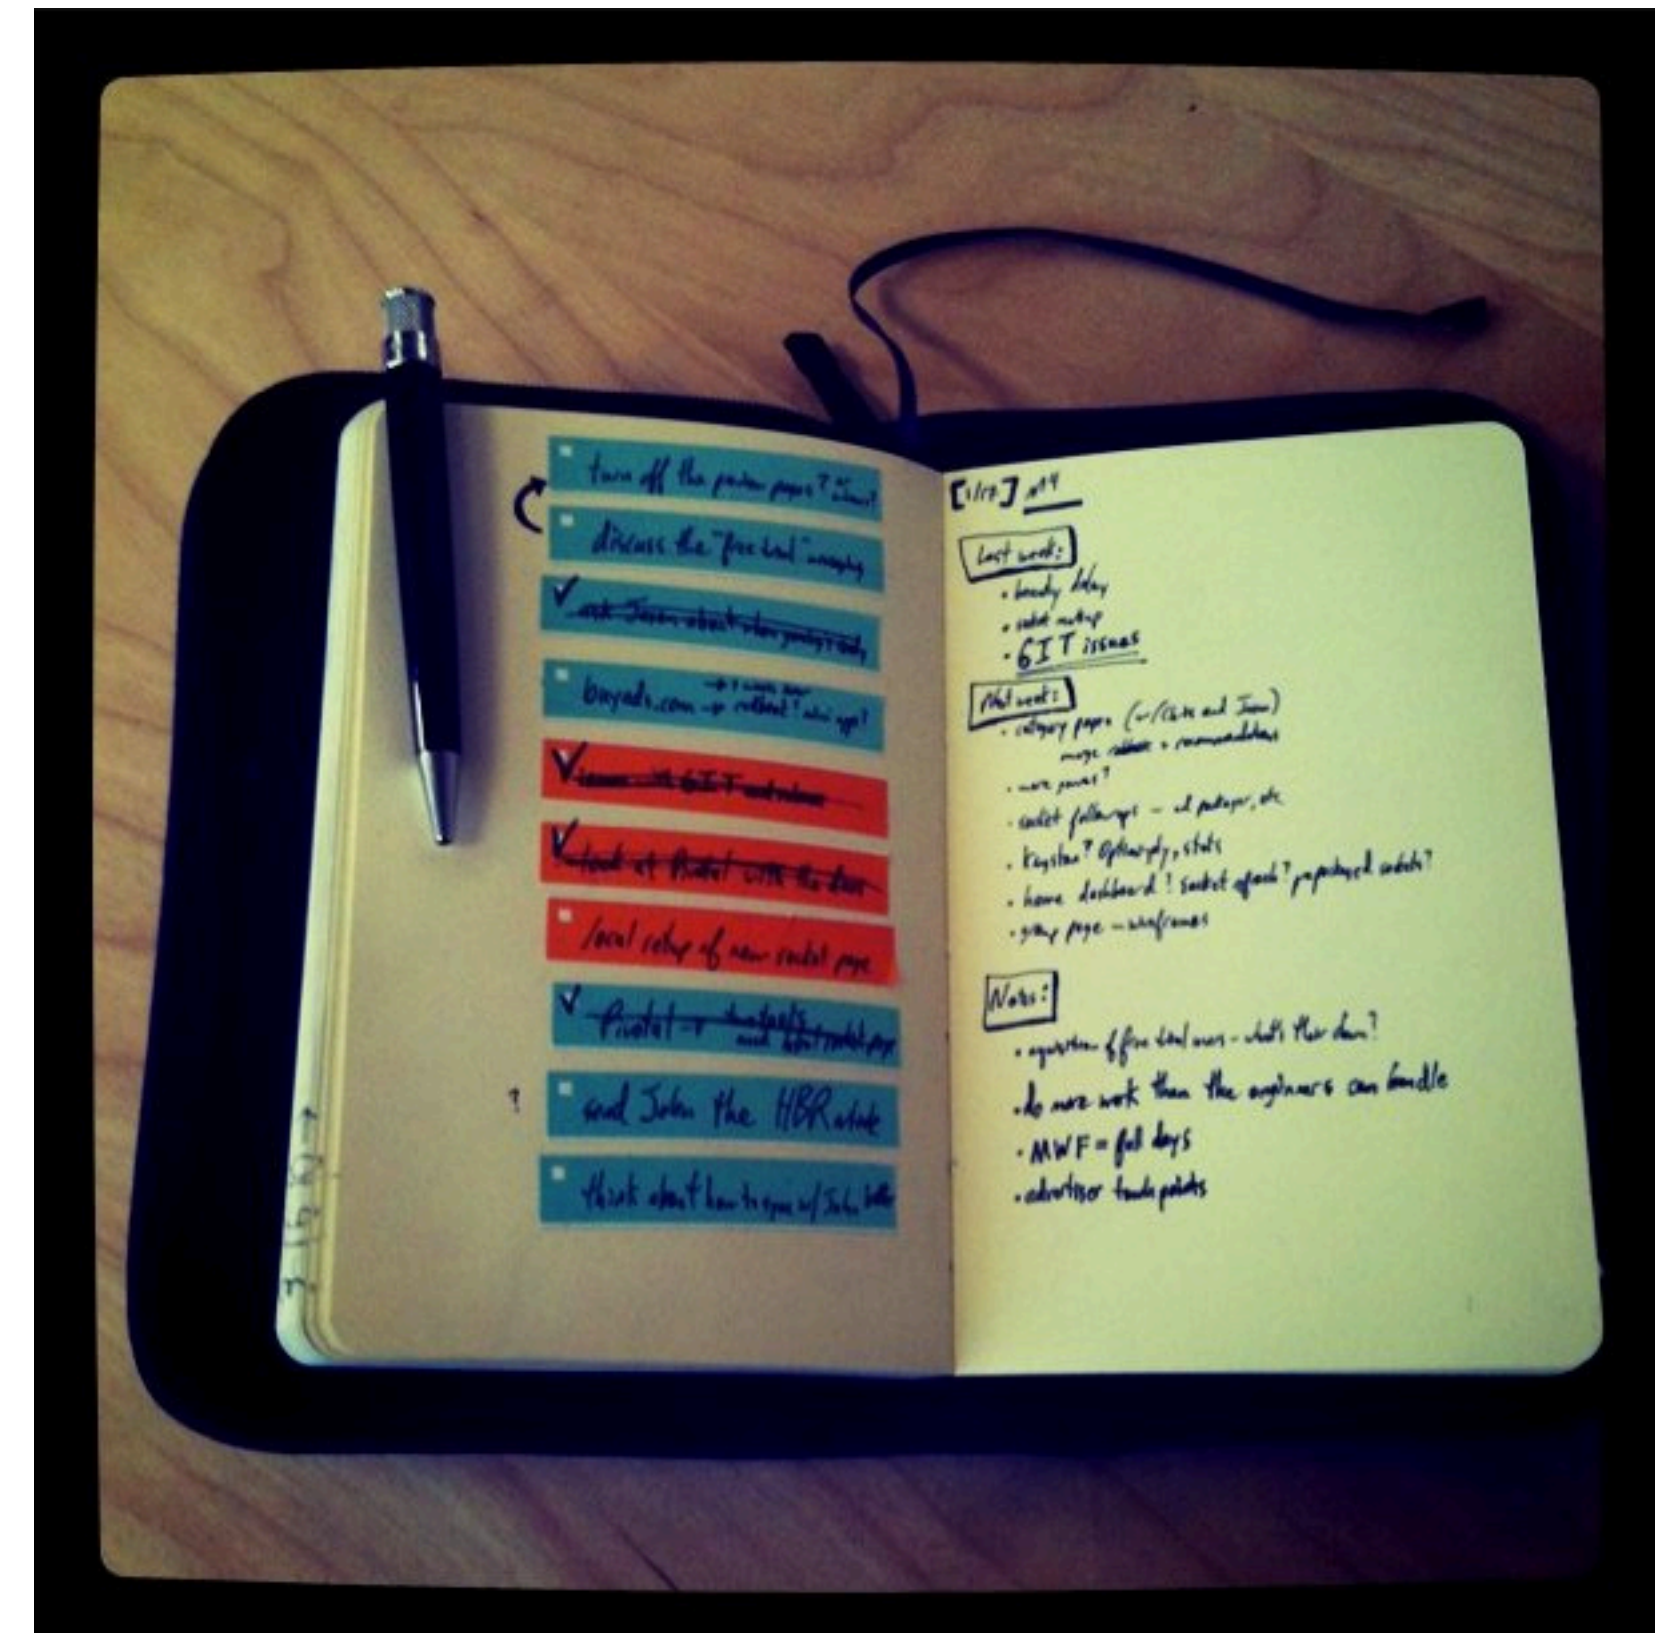 turn off the preview pages? or
discuss the "free trial"
ask Jason about
buyads.com → rollout? mini app?
→ 1 week
issues w/ GIT and
look at Pivotal with the
local setup of new socket page
Pivotal →
and socket page
? send John the HBR article
think about how to sync w/ John better
[1/17]
Last week:
• beauty delay
• socket
• GIT issues
Next week:
• category pages (w/ and Jason)
merge + recommendations
• more
• socket followups — ad packager, etc
• Keystone? Optimizely, stats
• home dashboard? socket prepackaged sockets?
• group page — wireframes
Notes:
• acquisition of free trial users - what's their
• do more work than the engineers can handle
• MWF = full days
• advertiser touch points